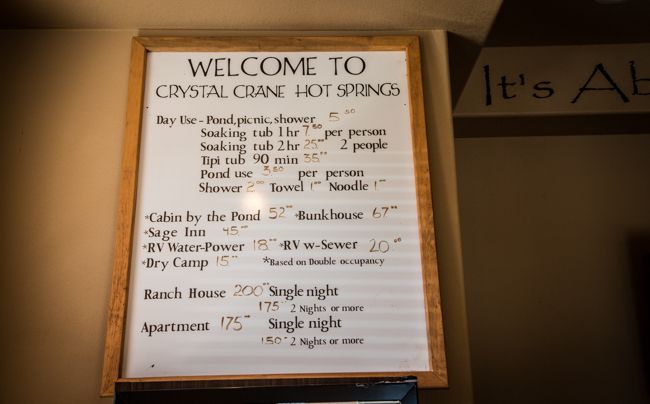 WELCOME TO
CRYSTAL CRANE HOT SPRINGS
Day Use - Pond, picnic, shower 5.50
Soaking tub 1 hr 7.50 per person
Soaking tub 2 hr 25.00 2 people
Tipi tub 90 min 35.00
Pond use 3.50 per person
Shower 2.00 Towel 1.00 Noodle 1.00
*Cabin by the Pond 52.00 *Bunkhouse 67.00
*Sage Inn 45.00
*RV Water-Power 18.00 *RV w-Sewer 20.00
*Dry Camp 15.00 *Based on Double occupancy
Ranch House 200.00 Single night
175.00 2 Nights or more
Apartment 175.00 Single night
150.00 2 Nights or more
It's Ab